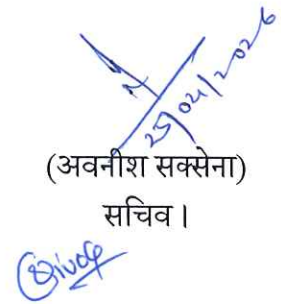 25/04/2026
(अवनीश सक्सेना)
सचिव।